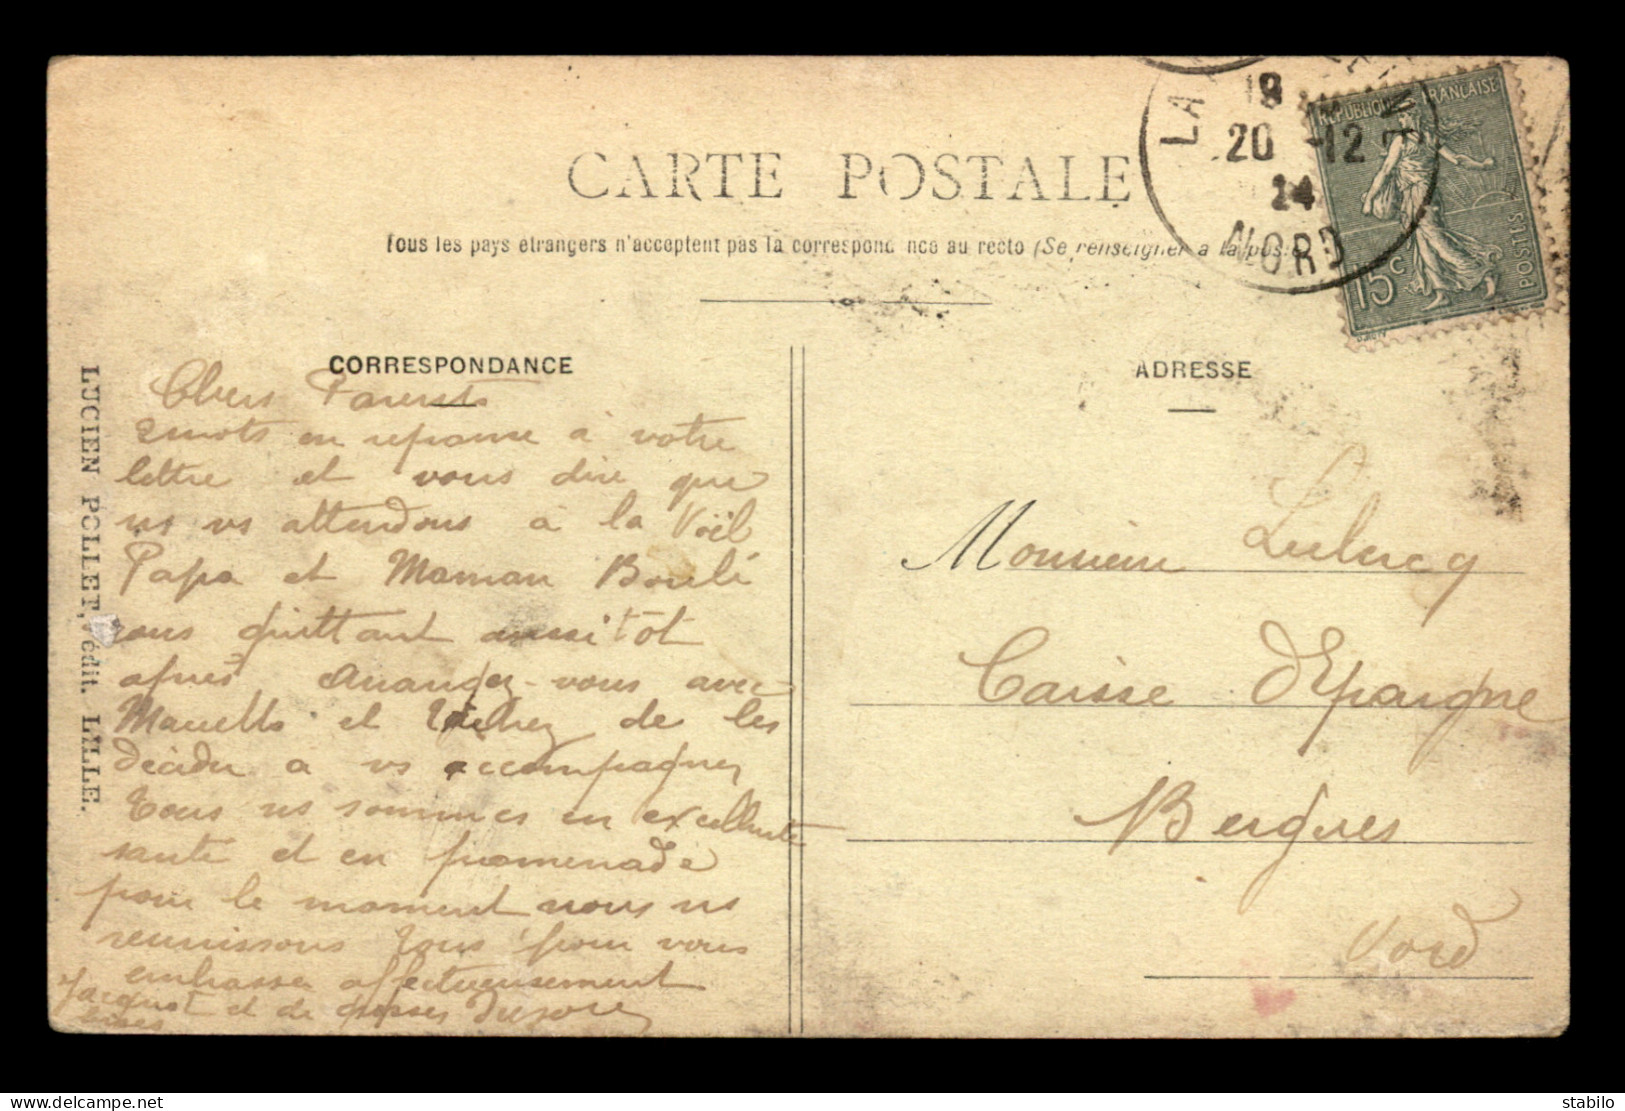 CARTE POSTALE
Tous les pays étrangers n'acceptent pas la correspondance au recto (Se renseigner à la poste)
LA
18
20 -12
24
NORD
REPUBLIQUE FRANÇAISE
POSTES
15c
CORRESPONDANCE
ADRESSE
LUCIEN POLLET, édit. LILLE.
Chers Parents
2 mots en reponse à votre
lettre et vous dire que
ns vs attendons à la Noël
Papa et Maman Boulé
nous quittant aussitôt
après Arrangez-vous avec
Marcelle et de les
décider a vs accompagner
Tous ns sommes en excellente
santé et en promenade
pour le moment nous ns
reunissons tous pour vous
embrasser affectueusement
Jacquot et de grosses
bises
Monsieur
Caisse d'Epargne
Bergues
Nord
stabilo - delcampe.net